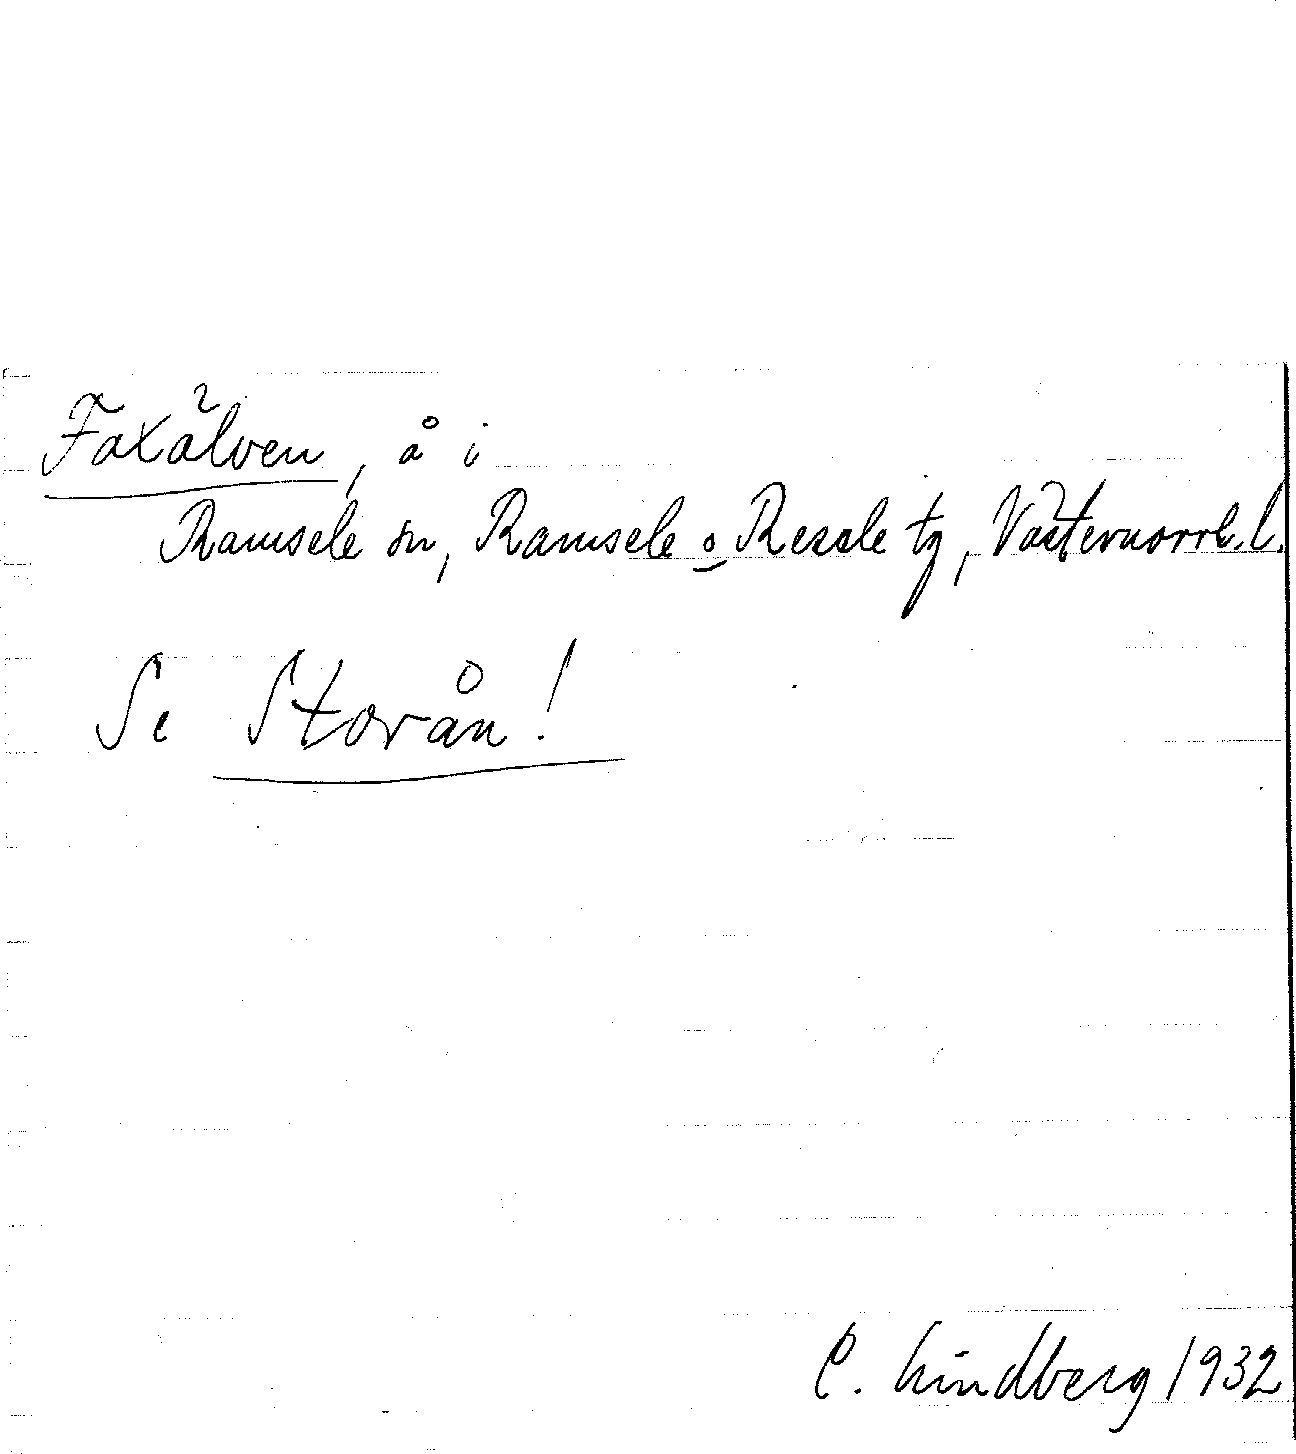 Faxälven, å i
Ramsele sn, Ramsele o Resele tg, Västernorrl. l.
Se Storån!
C. Lindberg 1932